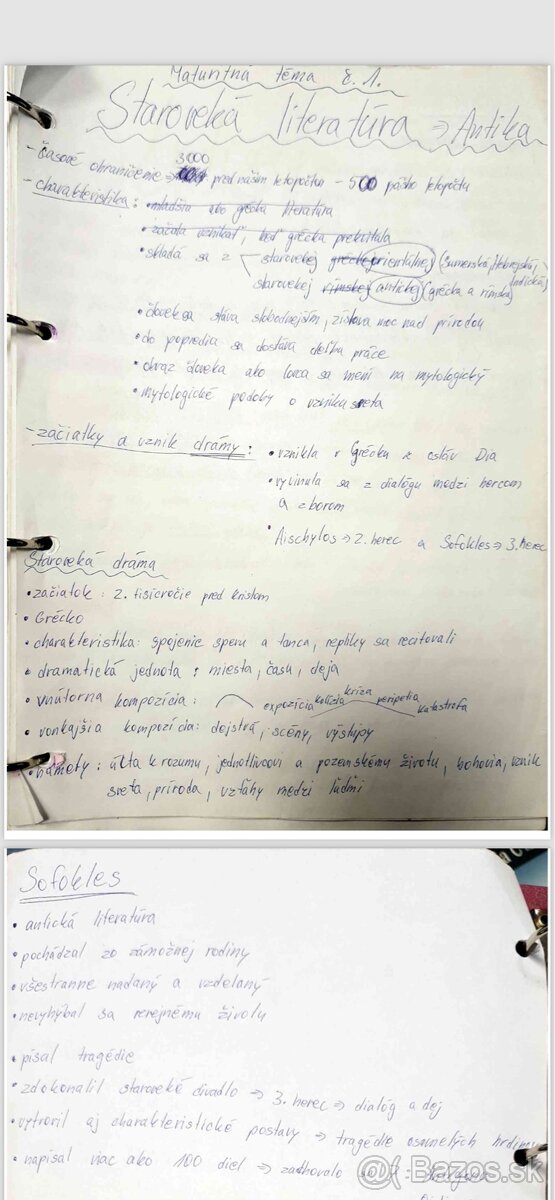 Maturitná téma č. 1.
Staroveká literatúra ⇒ Antika
- časové ohraničenie ⇒ 3000 pred naším letopočtom - 500 nášho letopočtu
- charakteristika: • mladšia ako grécka literatúra
• začala vznikať, keď grécka prekvitala
• skladá sa z starovekej gréckej orientálnej (sumerská, hebrejská, indická)
starovekej rímskej antickej (grécka a rímska)
• človek sa stáva slobodnejším, získava moc nad prírodou
• do popredia sa dostáva deľba práce
• obraz človeka ako lovca sa mení na mytologický
• mytologické podoby o vzniku sveta
- začiatky a vznik drámy: • vznikla v Grécku z osláv Dia
• vyvinula sa z dialógu medzi hercom
a zborom
• Aischylos ⇒ 2. herec a Sofokles ⇒ 3. herec
Staroveká dráma
• začiatok: 2. tisícročie pred kristom
• Grécko
• charakteristika: spojenie spevu a tanca, repliky sa recitovali
• dramatická jednota: miesta, času, deja
• vnútorna kompozícia: expozícia kolízia kríza peripetia katastrofa
• vonkajšia kompozícia: dejstvá, scény, výstupy
• námety: úcta k rozumu, jednotlivcovi a pozemskému životu, bohovia, vznik
sveta, príroda, vzťahy medzi ľuďmi
Sofokles
• antická literatúra
• pochádzal zo zámožnej rodiny
• všestranne nadaný a vzdelaný
• nevyhýbal sa verejnému životu
• písal tragédie
• zdokonalil staroveké divadlo ⇒ 3. herec ⇒ dialóg a dej
• vytvoril aj charakteristické postavy ⇒ tragédie osamelých hrdinov
• napísal viac ako 100 diel ⇒ zachovalo sa 7:
Bazos.sk